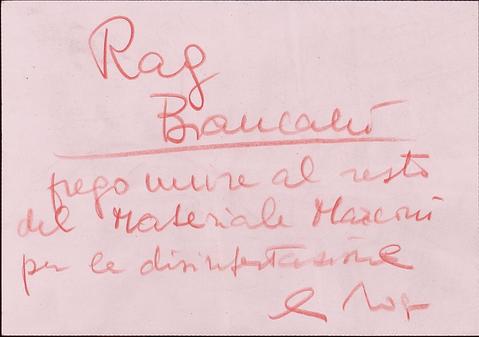 Rag
Brancalni
prego unire al resto
del Materiale Marconi
per la disinfestazione